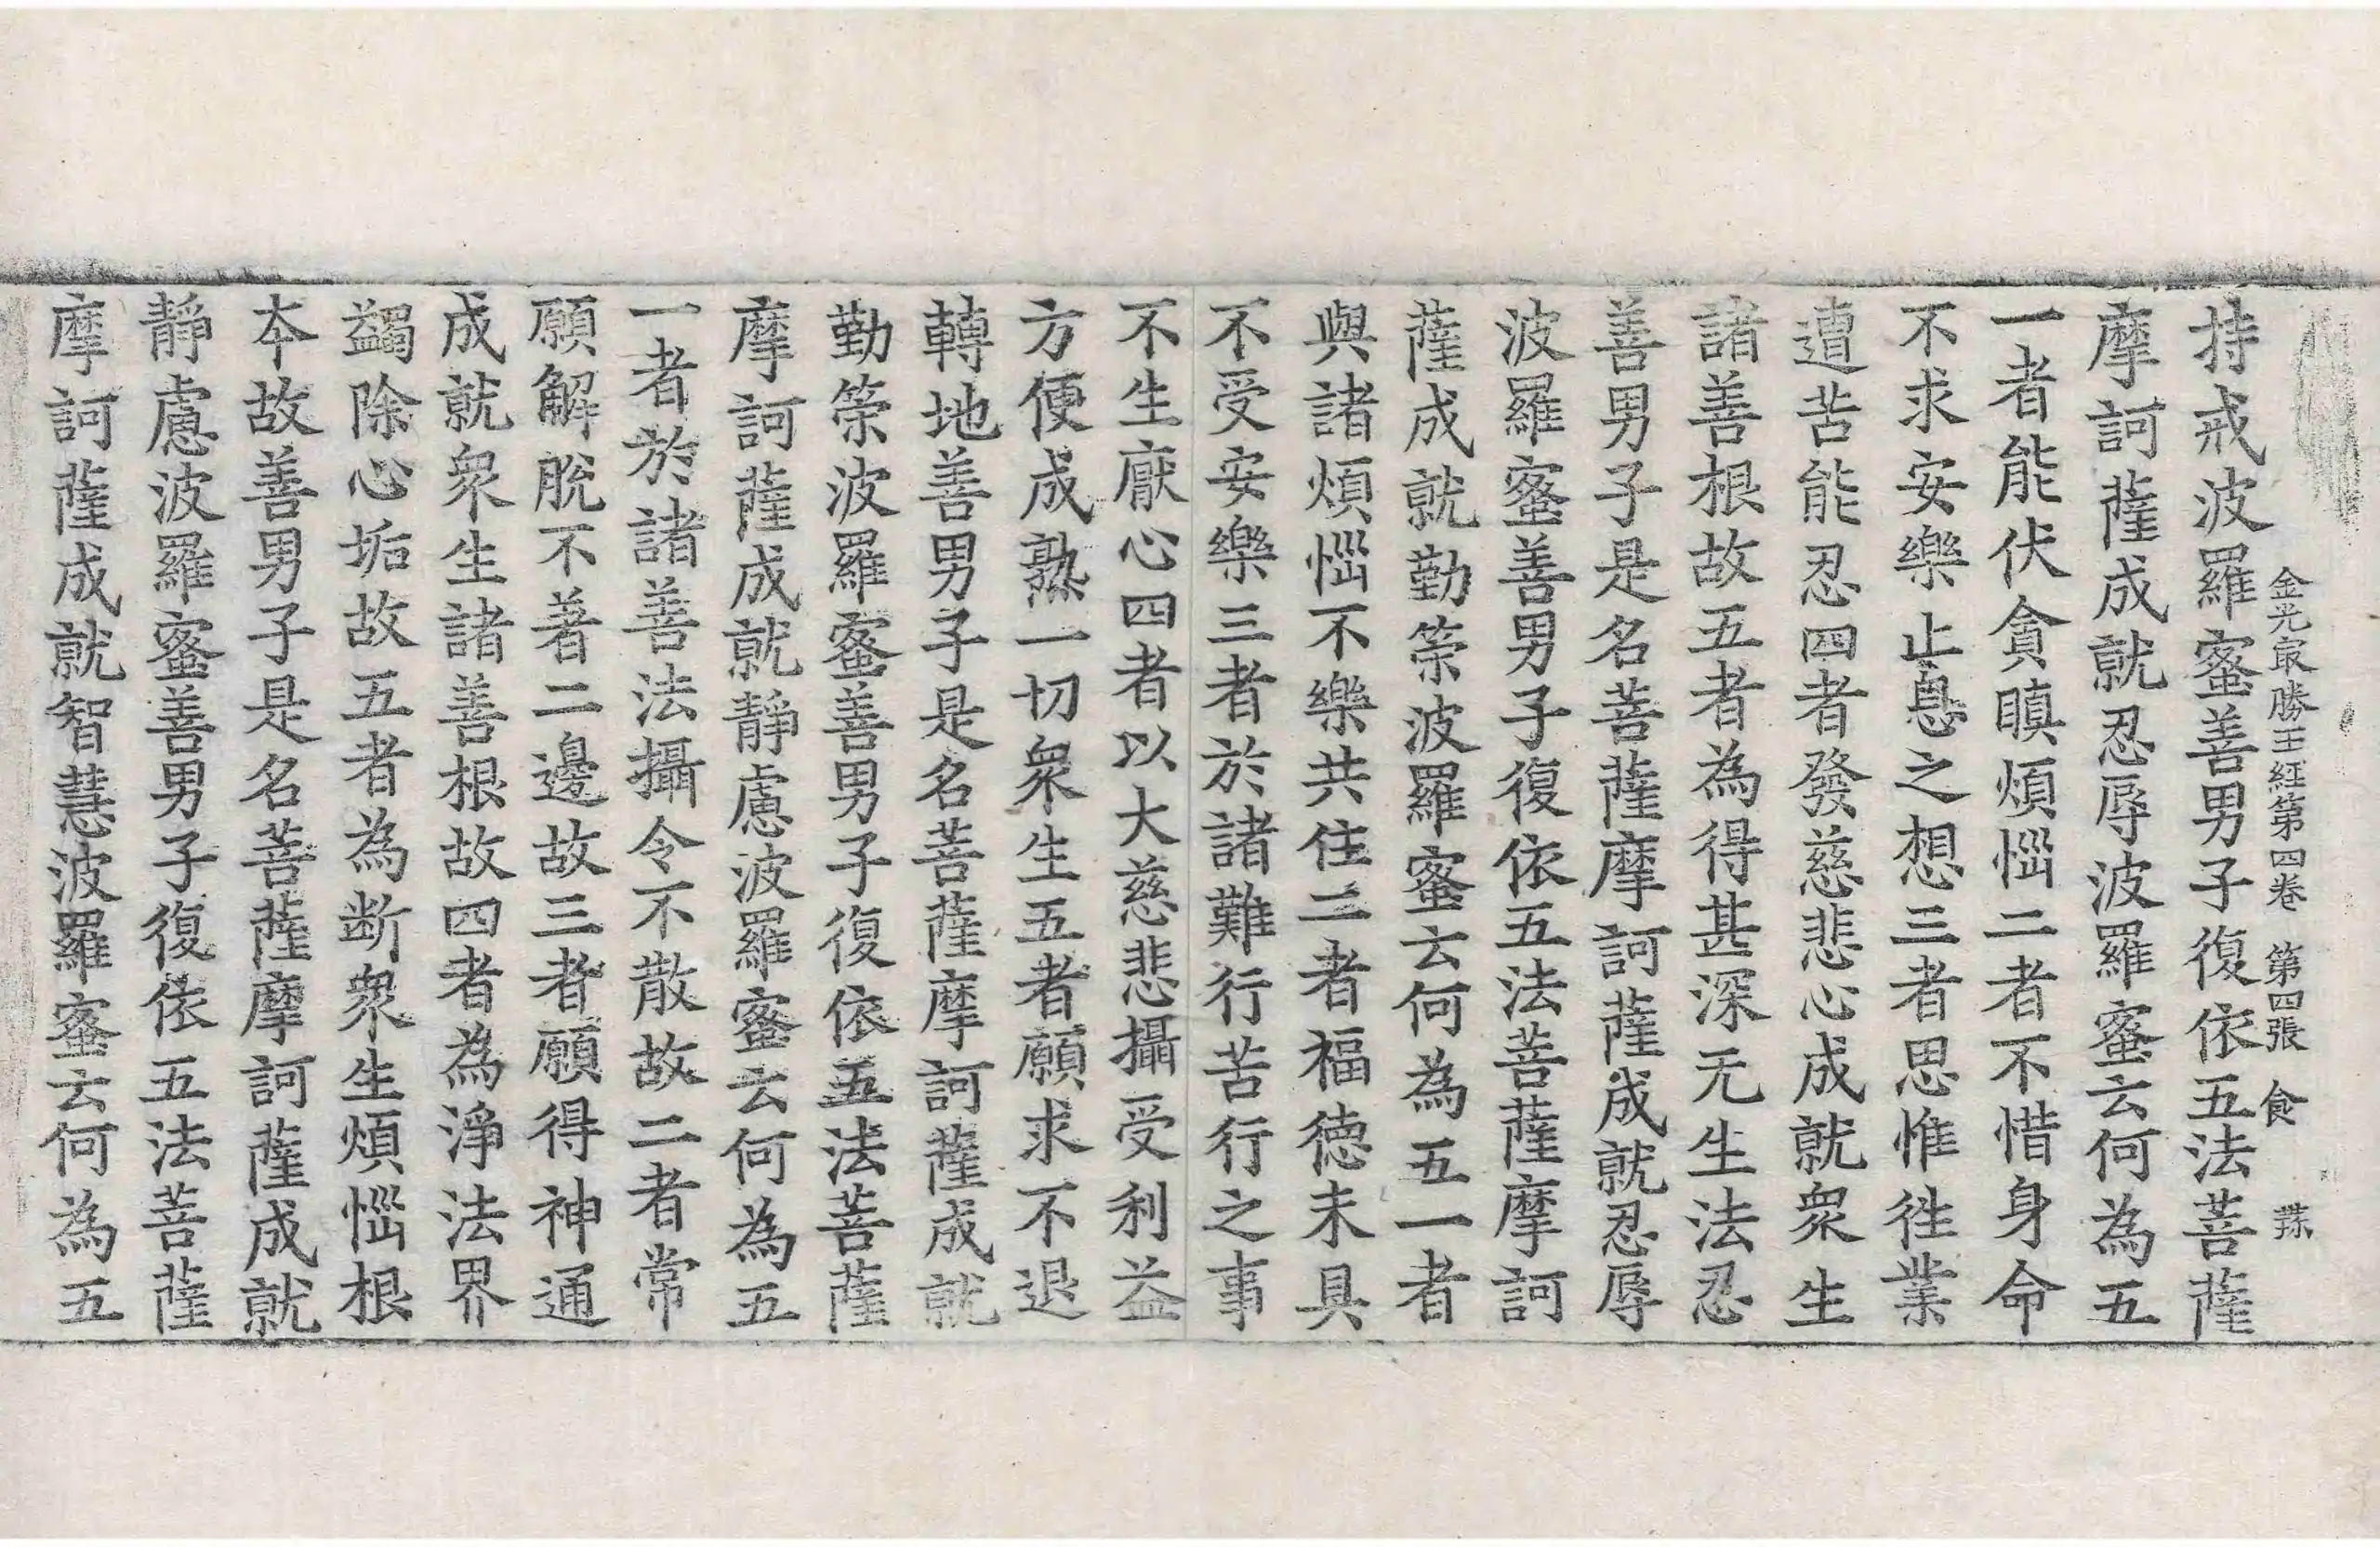 金光㝡勝王經第四卷　第四張　食
持戒波羅蜜善男子復依五法菩薩
摩訶薩成就忍辱波羅蜜云何為五
一者能伏貪瞋煩惱二者不惜身命
不求安樂止息之想三者思惟徃業
遭苦能忍四者發慈悲心成就衆生
諸善根故五者為得甚深无生法忍
善男子是名菩薩摩訶薩成就忍辱
波羅蜜善男子復依五法菩薩摩訶
薩成就勤策波羅蜜云何為五一者
與諸煩惱不樂共住二者福德未具
不受安樂三者於諸難行苦行之事
不生厭心四者以大慈悲攝受利益
方便成熟一切衆生五者願求不退
轉地善男子是名菩薩摩訶薩成就
勤策波羅蜜善男子復依五法菩薩
摩訶薩成就靜慮波羅蜜云何為五
一者於諸善法攝令不散故二者常
願解脫不著二邊故三者願得神通
成就衆生諸善根故四者為淨法界
蠲除心垢故五者為断衆生煩惱根
本故善男子是名菩薩摩訶薩成就
靜慮波羅蜜善男子復依五法菩薩
摩訶薩成就智慧波羅蜜云何為五